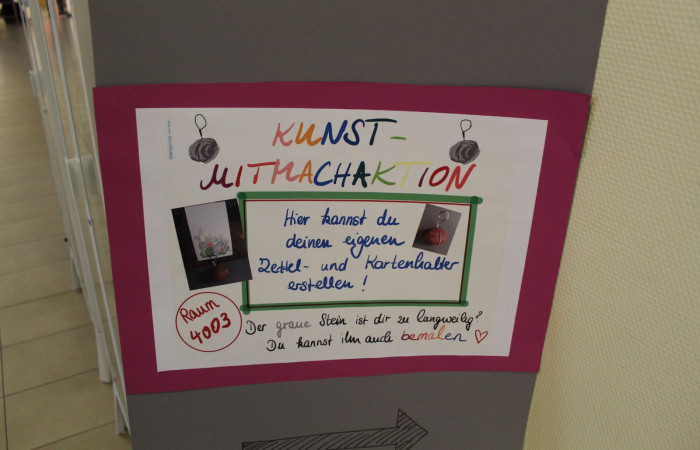 KUNST-
MITMACHAKTION
Hier kannst du
deinen eigenen
Zettel- und Kartenhalter
erstellen!
Raum
4003
Der graue Stein ist dir zu langweilig?
Du kannst ihn auch bemalen